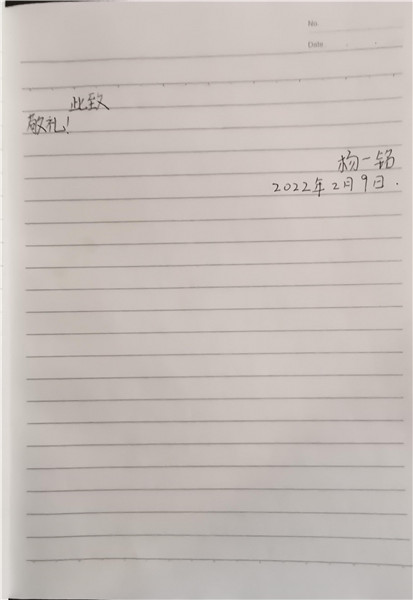 No.
Date
此致
敬礼!
杨一铭
2022年2月9日.